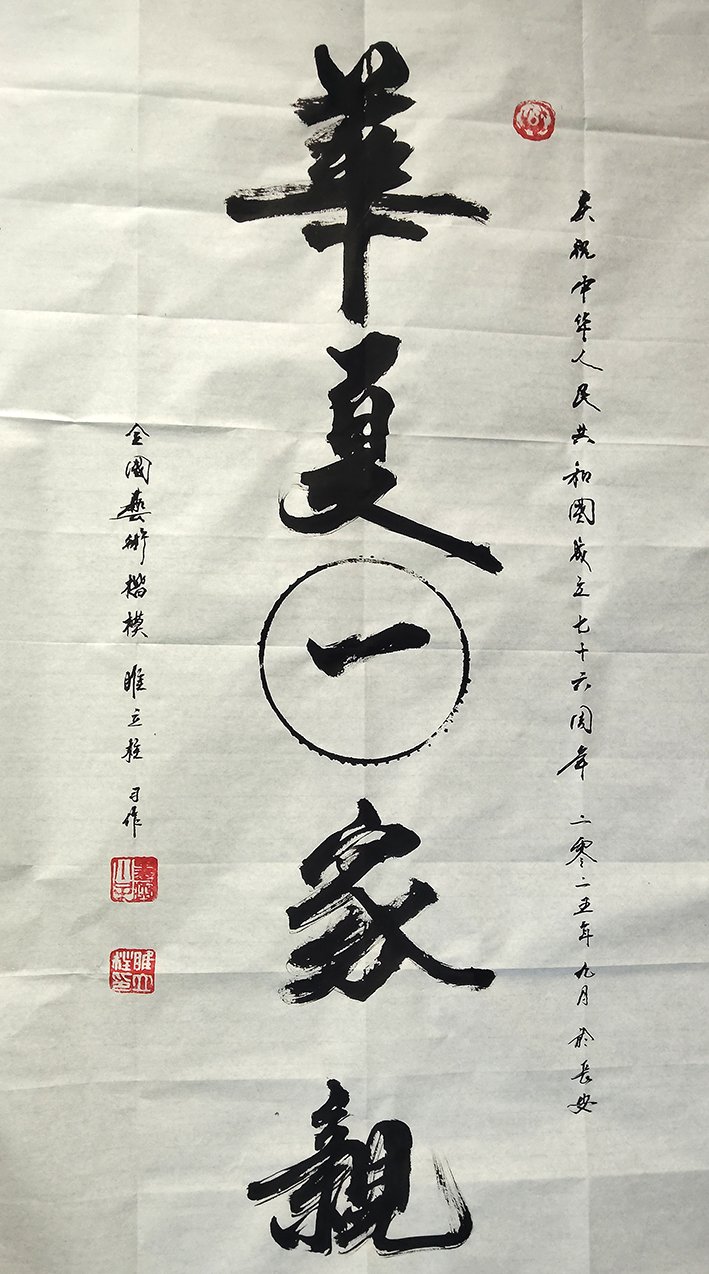 庆祝中华人民共和國成立七十六周年 二零二五年 九月 於長安
華夏一家親
全國藝術楷模 睢立柱 习作
睢立柱印